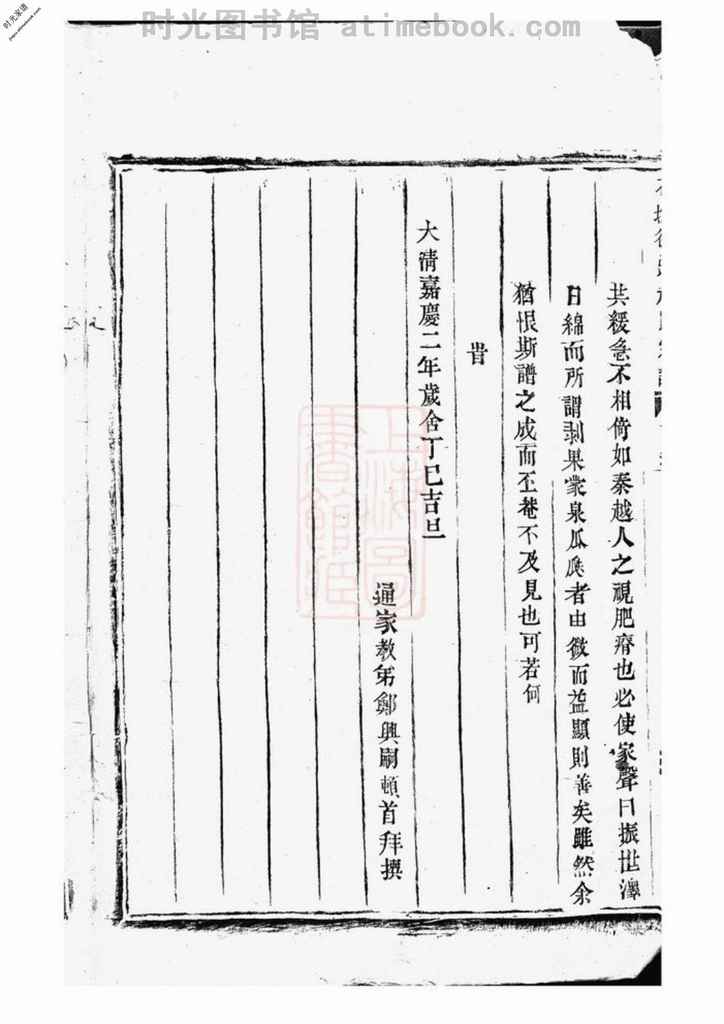 时光图书馆 atimebook.com
时光家谱
共緩急不相倚如秦越人之視肥瘠也必使家聲日振世澤
日綿而所謂剥果蒙泉瓜瓞者由微而益顯則善矣雖然余
猶恨斯譜之成而丕菴不及見也可若何
旹
大清嘉慶二年歲舍丁巳吉旦
通家教弟鄭興嗣頓首拜撰